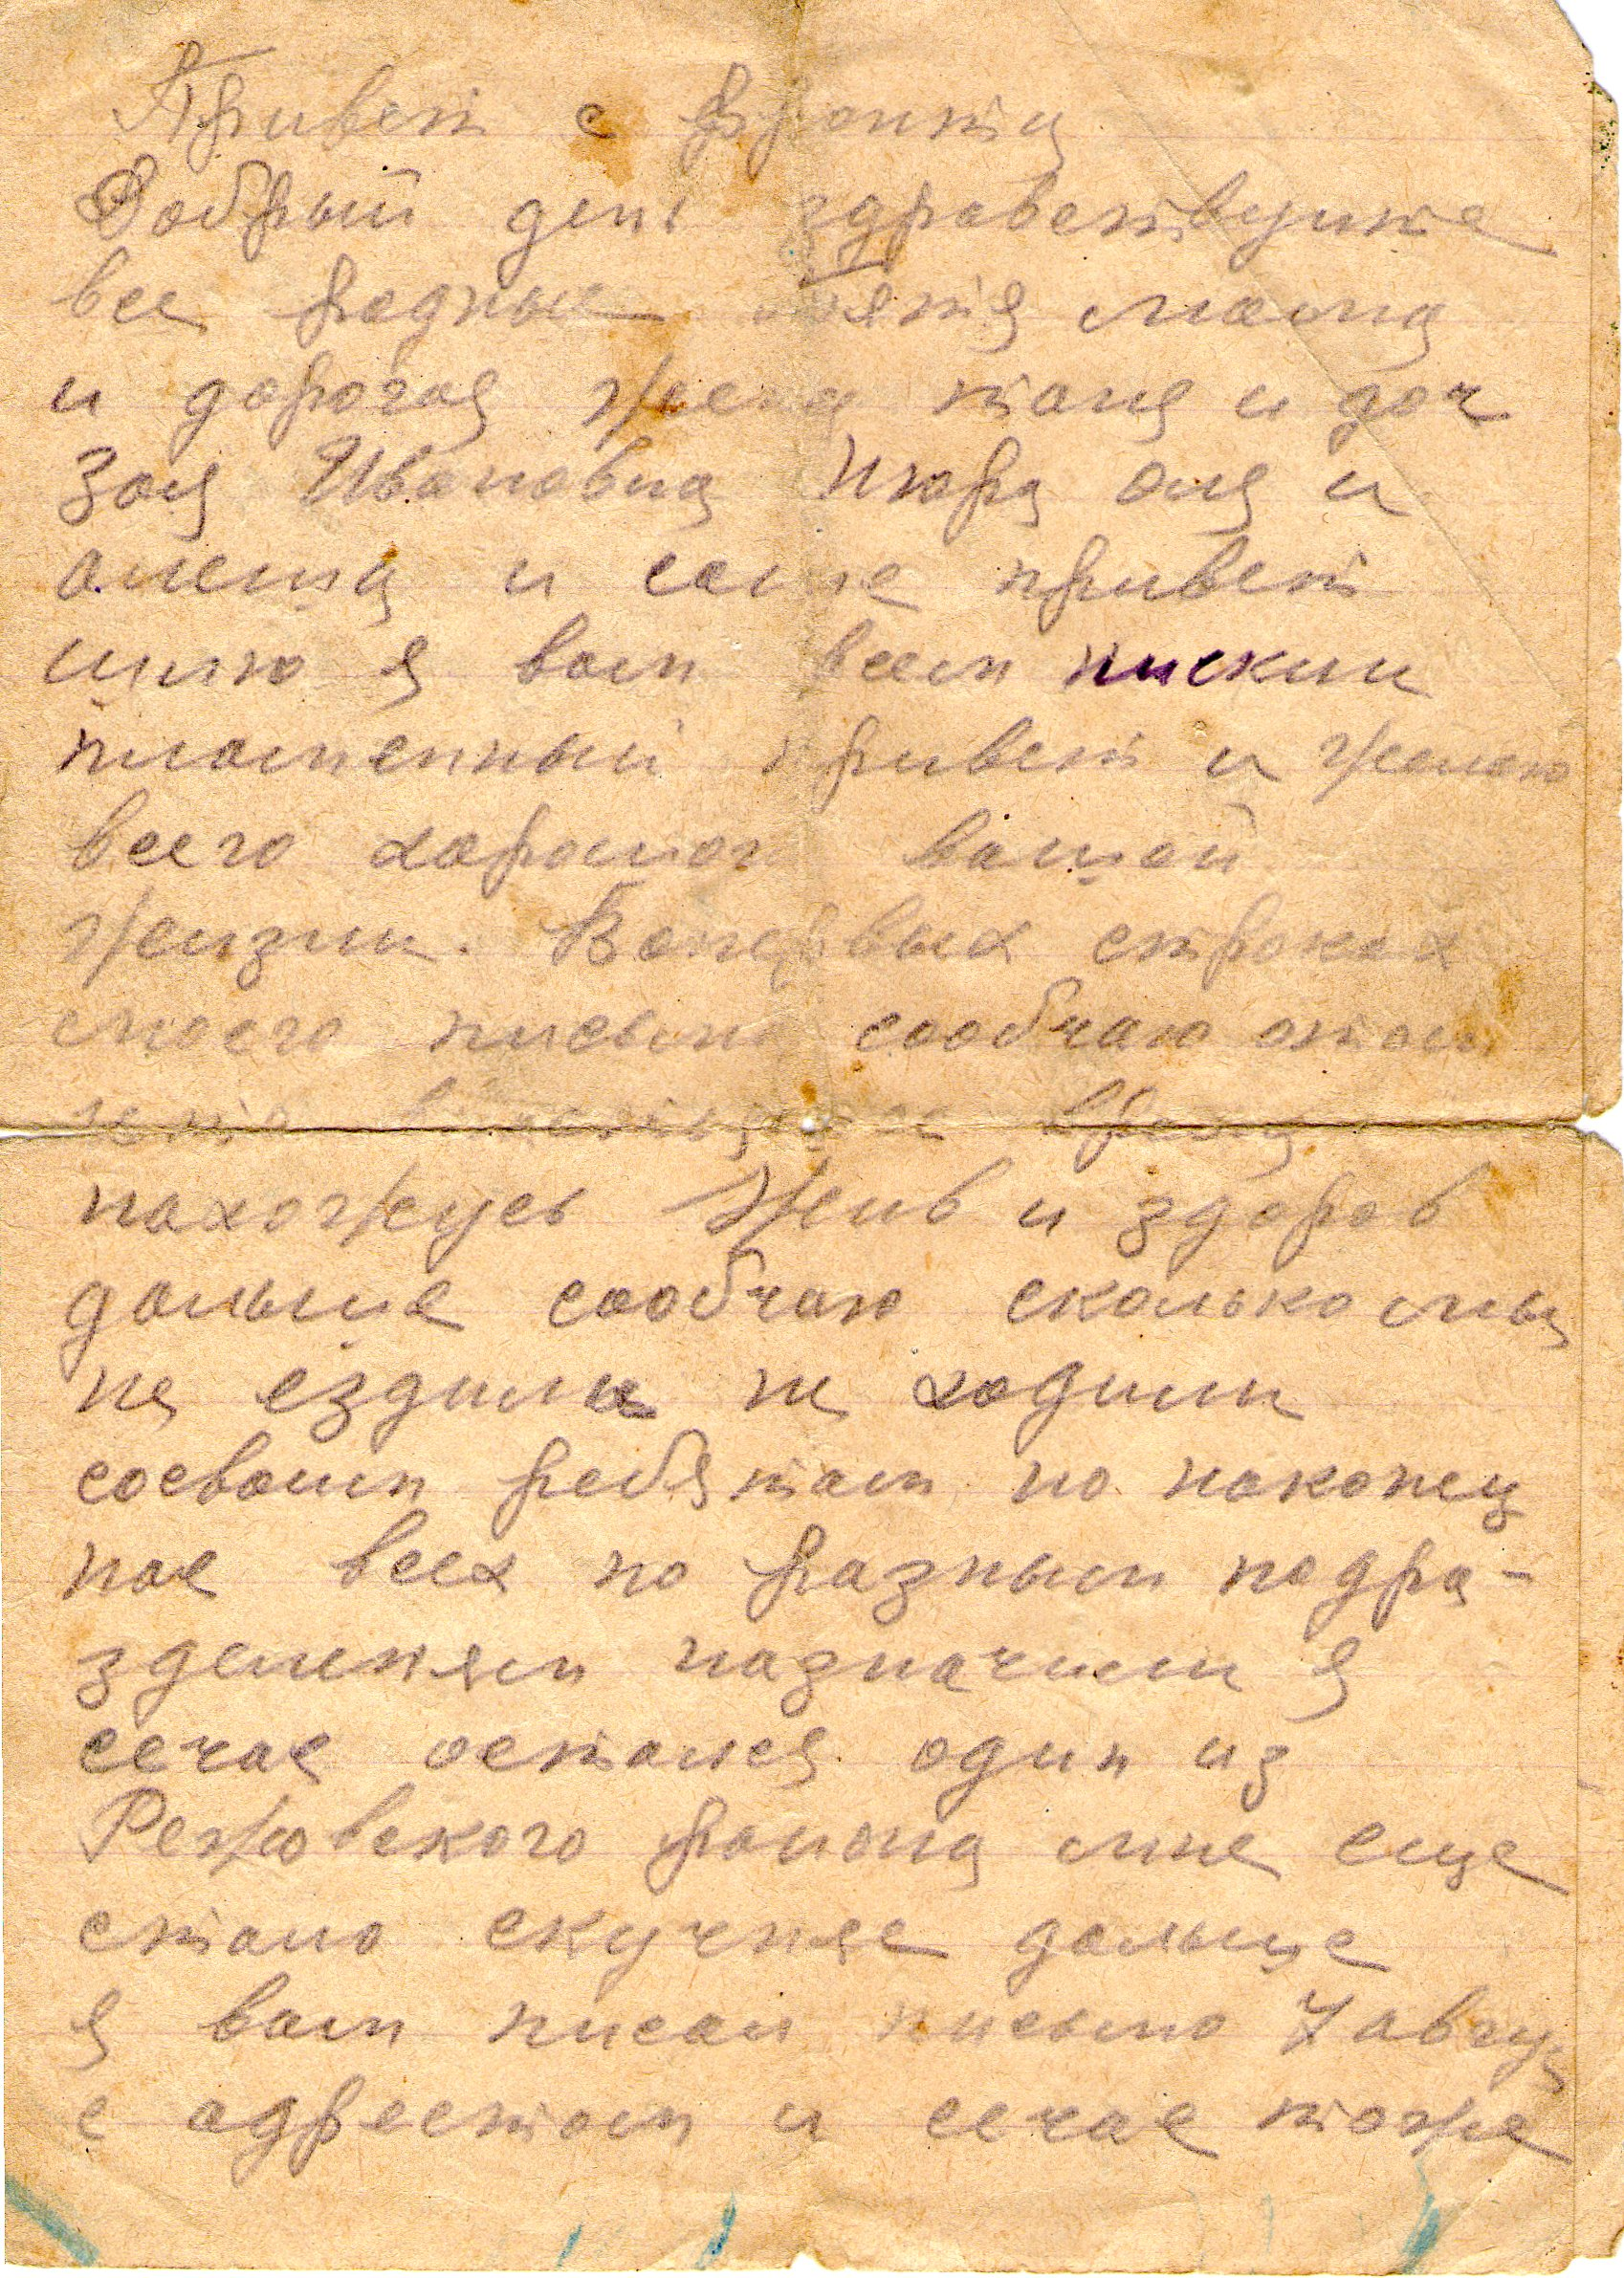 Привет с фронта
Добрый день здравствуйте
все родные тятя мама
и дорогая жена таня и доч
Зоя Ивановна Нюра оля и
алеша и саше привет
шлю я вам всем ниский
пламенный привет и желаю
всего харошого вашей
жизни. Вопервых строках
моего письма сообчаю отом
что время
нахожусь жив и здоров
дальше сообчаю сколько мы
не ездили не ходили
сосвоим ребятам но наконец
нас всех по разным подра-
зделеням назначили я
сечас остался один из
Режовского раиона мне еще
стало скучняе дальше
я вам писал письмо 7 авгу
с адрестом и сечас тоже